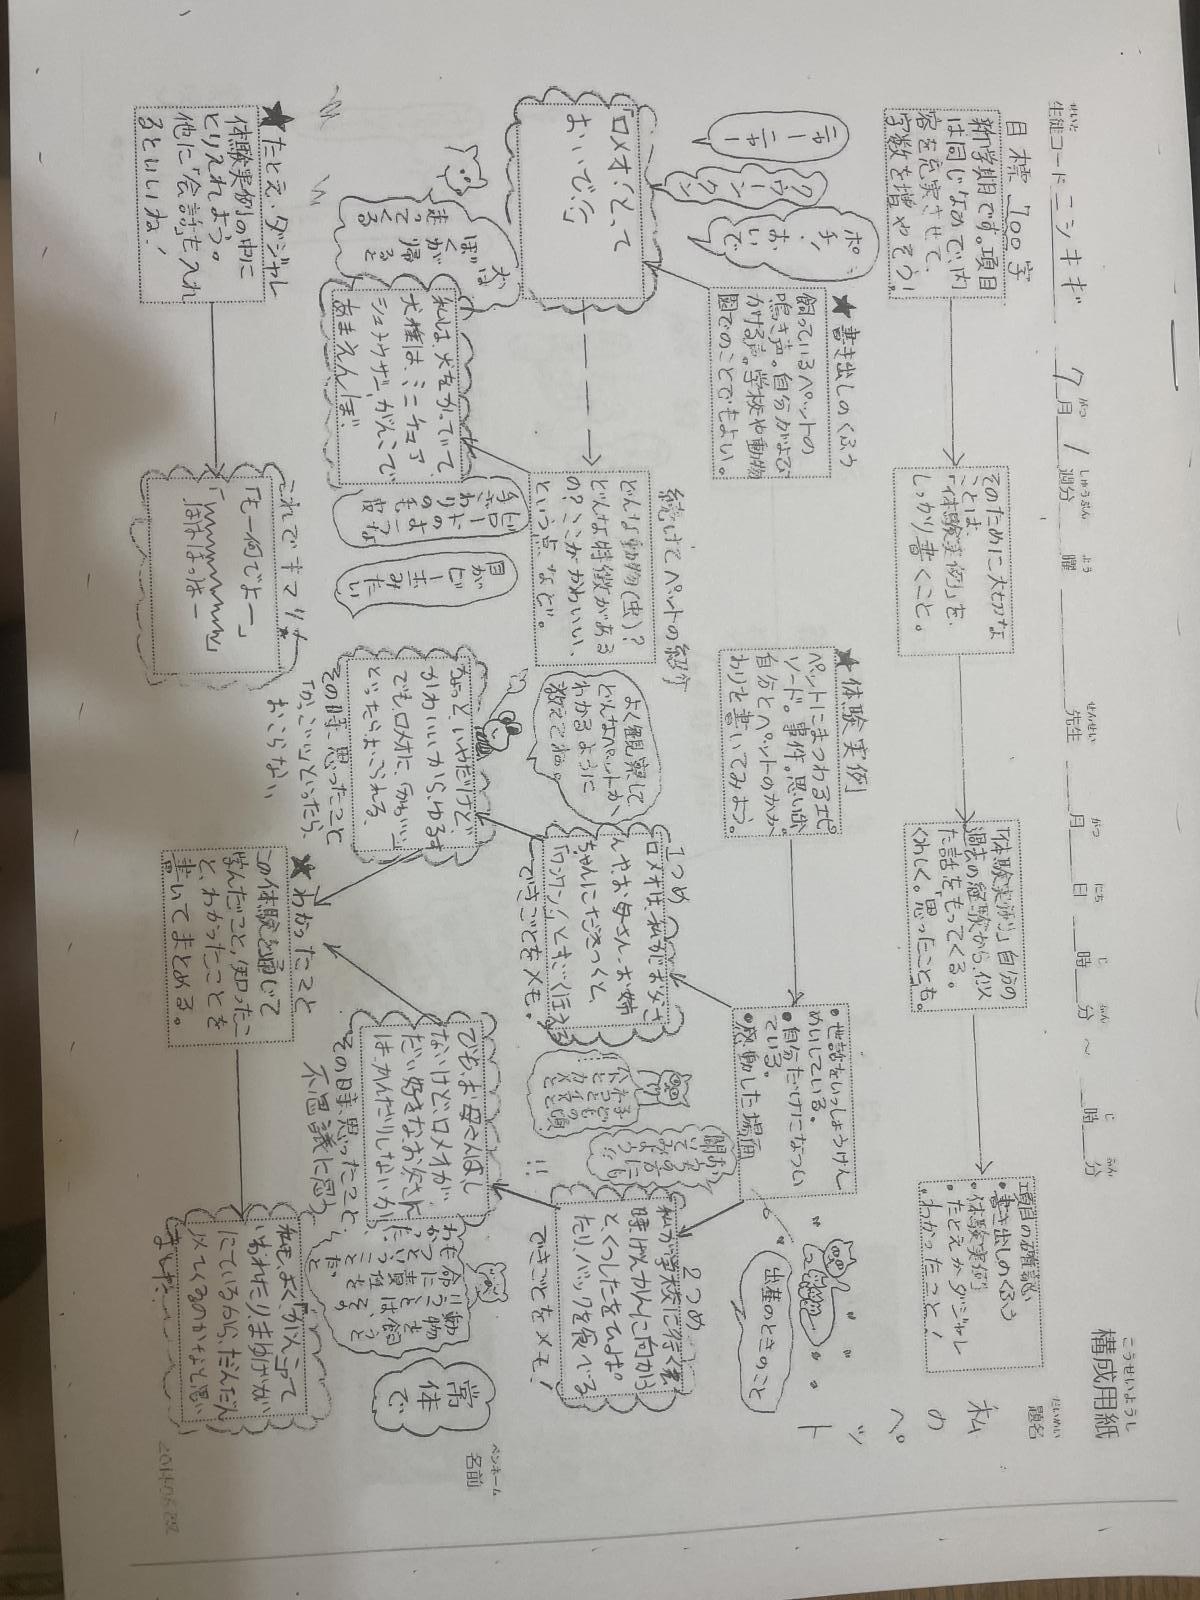 構成用紙
こうせいようし
せいと
生徒コード ニシキギ 7月 1週分 曜 先生 月 日 時 分 ～ 時 分
がつ しゅうぶん よう せんせい がつ にち じ ふん じ ふん
だいめい
題名
私のペット
ペンネーム
名前
目標 700字
新学期です。項目
は同じなので、内
容を充実させて、
字数を増やそう!
そのために大切な
ことは、
「体験実例」を
しっかり書くこと。
「体験実例」自分の
過去の経験から、似
た話をもってくる。
くわしく。思ったことも。
項目の確認
・書き出しのくふう
・体験実例
・たとえかダジャレ
・わかったこと!
★書き出しのくふう
飼っているペットの
鳴き声。自分がよび
かける声。学校や動物
園でのことでもよい。
ニャー
ニャー
クウーン
クウン
ポチ!
おい
で
★体験実例
ペットにまつわるエピ
ソード。事件。思い出。
自分とペットのかか
わりを書いてみよう。
・世話をいっしょうけん
めいしている。
・自分だけになつい
ている。
・感動した場面
出産のときのこと
「ロメオ!とって
おいで!」
続けてペットの紹介
どんな動物(虫)?
どんな特徴がある
の?ここがかわいい、
という点、など。
よく観察して
どんなペットか
わかるように
教えてね。
1つめ
ロメオは、私がお父さ
んやお母さん、お姉
ちゃんにだきつくと
「ワンワン!」とすごくほえる
できごとをメモ。
2つめ
私が学校に行く
時げんかんに向かう
とくつしたをひっぱっ
たりバックを
できごとをメモ!
ぼくが
帰ると
走って
くる
私は、犬をかっていて、
犬種は、ミニチュア
シュナウザー、がんこで
あまえんぼ。
目が
ビー玉
みたい
ちょっと、いやだけど、
かわいいからゆるす
でも、ロメオに、「かわいい」
といったらよろこぶ。
その時、思ったこと
「かっこいい」といったら、
おこらない
でも、お母さんはし
ないけど、ロメオが
だい好きなお父さん
は、かんだりしないから
その時、思ったこと、
不思議に思う
動物を
飼う
常体で
★たとえ・ダジャレ
体験実例の中に
とりいれよう。
他に「会話」も入れ
るといいね!
これでキマリ★
「もー何でよー」
★わかったこと
この体験を通じて
学んだこと、知ったこ
と、わかったことを
書いてまとめる。
私も、よく「がんこ」って
いわれたり、まゆげが
にているから、だんだん
にてくるのかなと思い
ました。